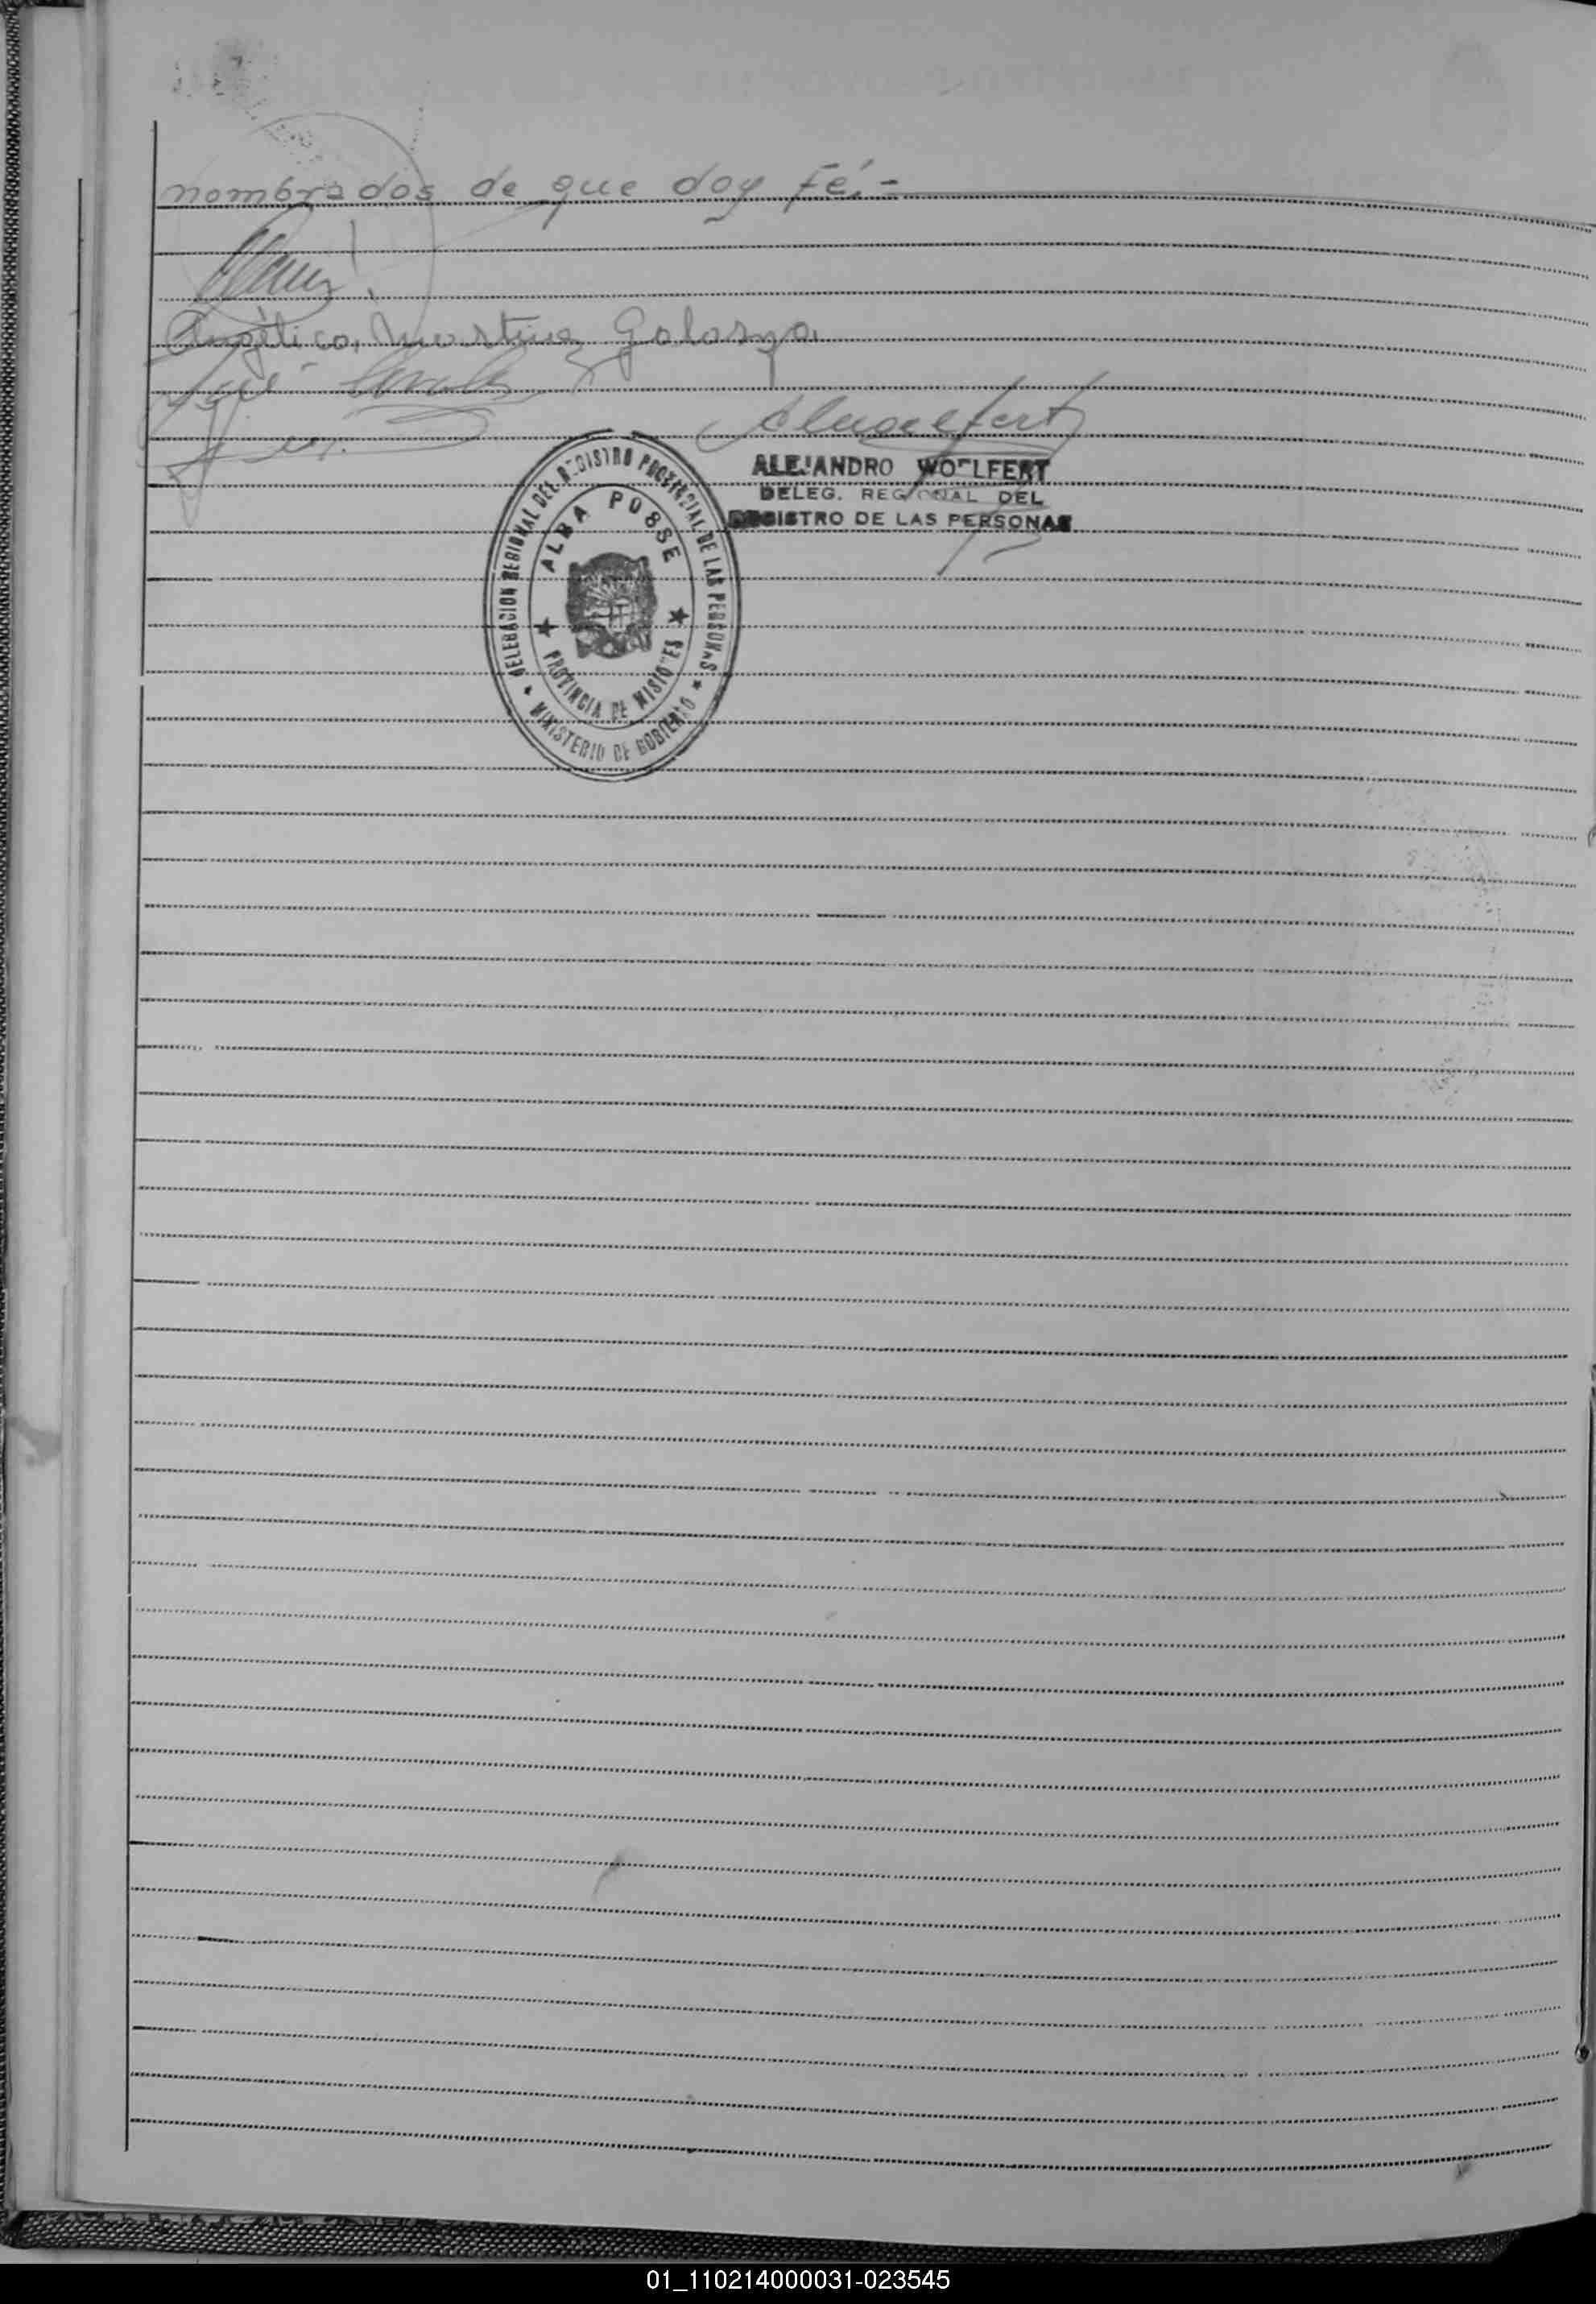 nombrados de que doy fé.-
Angélica Martinez Galarza
José
ALEJANDRO WOELFERT
DELEG. REGIONAL DEL
REGISTRO DE LAS PERSONAS
DELEGACION REGIONAL DEL REGISTRO PROVINCIAL DE LAS PERSONAS
ALBA POSSE
★ PROVINCIA DE MISIONES ★
★ MINISTERIO DE GOBIERNO ★
01_110214000031-023545